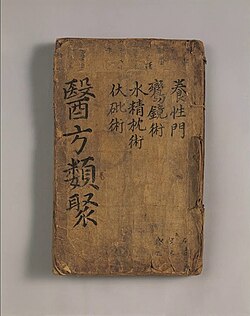 養性門
水精枕術
伏砒術
醫方類聚